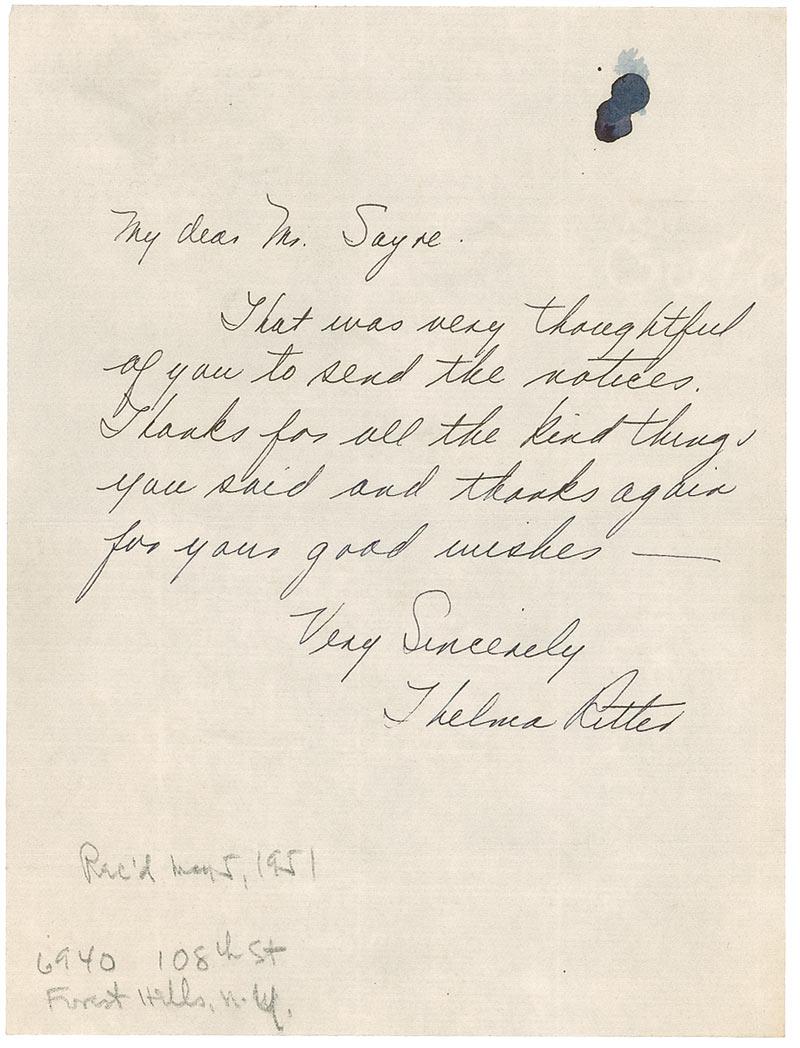 My dear Mr. Sayre.
That was very thoughtful
of you to send the notices.
Thanks for all the kind things
you said and thanks again
for your good wishes —
Very Sincerely
Thelma Ritter
Rec'd May 5, 1951
6940 108th St
Forest Hills, N.Y.